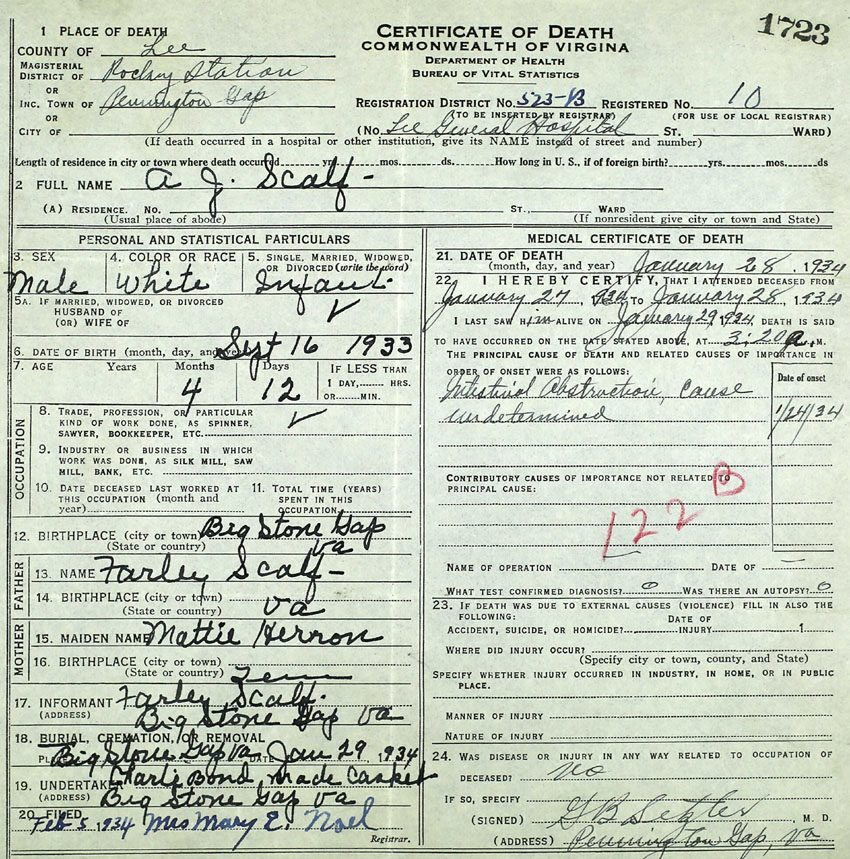 1723
CERTIFICATE OF DEATH
COMMONWEALTH OF VIRGINIA
DEPARTMENT OF HEALTH
BUREAU OF VITAL STATISTICS
1 PLACE OF DEATH
COUNTY OF Lee
MAGISTERIAL
DISTRICT OF Rocky Station
OR
INC. TOWN OF Pennington Gap
OR
CITY OF
REGISTRATION DISTRICT NO. 523-B REGISTERED NO. 10
(TO BE INSERTED BY REGISTRAR) (FOR USE OF LOCAL REGISTRAR)
(NO. Lee General Hospital ST. WARD)
(If death occurred in a hospital or other institution, give its NAME instead of street and number)
Length of residence in city or town where death occurred yrs. mos. ds. How long in U. S., if of foreign birth? yrs. mos. ds
2 FULL NAME A J. Scalf -
(A) RESIDENCE. NO. ST., WARD
(Usual place of abode) (If nonresident give city or town and State)
PERSONAL AND STATISTICAL PARTICULARS
3. SEX 4. COLOR OR RACE 5. SINGLE, MARRIED, WIDOWED,
OR DIVORCED (write the word)
Male White Infant
5A. IF MARRIED, WIDOWED, OR DIVORCED
HUSBAND OF
(OR) WIFE OF
6. DATE OF BIRTH (month, day, and year) Sept 16 1933
7. AGE Years Months Days IF LESS THAN
1 DAY, HRS.
OR MIN.
4 12
OCCUPATION
8. TRADE, PROFESSION, OR PARTICULAR
KIND OF WORK DONE, AS SPINNER,
SAWYER, BOOKKEEPER, ETC.
9. INDUSTRY OR BUSINESS IN WHICH
WORK WAS DONE, AS SILK MILL, SAW
MILL, BANK, ETC.
10. DATE DECEASED LAST WORKED AT
THIS OCCUPATION (month and
year)
11. TOTAL TIME (YEARS)
SPENT IN THIS
OCCUPATION
12. BIRTHPLACE (city or town) Big Stone Gap
(State or country) Va
FATHER
13. NAME Farley Scalf -
14. BIRTHPLACE (city or town)
(State or country) Va
MOTHER
15. MAIDEN NAME Mattie Herron
16. BIRTHPLACE (city or town)
(State or country) Tenn
17. INFORMANT Farley Scalf.
(ADDRESS) Big Stone Gap Va
18. BURIAL, CREMATION, OR REMOVAL
PLACE Big Stone Gap Va DATE Jan 29, 1934
19. UNDERTAKER Charli Bond, made Casket
(ADDRESS) Big Stone Gap Va
20. FILED Feb 5, 1934 Mrs Mary E. Noel
Registrar.
MEDICAL CERTIFICATE OF DEATH
21. DATE OF DEATH
(month, day, and year) January 28, 1934
22. I HEREBY CERTIFY, THAT I ATTENDED DECEASED FROM
January 27, 1934 TO January 28, 1934
I LAST SAW Him ALIVE ON January 29 1934, DEATH IS SAID
TO HAVE OCCURRED ON THE DATE STATED ABOVE, AT 3:20 a. M.
THE PRINCIPAL CAUSE OF DEATH AND RELATED CAUSES OF IMPORTANCE IN
ORDER OF ONSET WERE AS FOLLOWS:
Date of onset
Intestinal Abstruction, cause
undetermined 1/24/34
CONTRIBUTORY CAUSES OF IMPORTANCE NOT RELATED TO
PRINCIPAL CAUSE:
122 B
NAME OF OPERATION DATE OF -
WHAT TEST CONFIRMED DIAGNOSIS? 0 WAS THERE AN AUTOPSY? 0
23. IF DEATH WAS DUE TO EXTERNAL CAUSES (VIOLENCE) FILL IN ALSO THE
FOLLOWING:
ACCIDENT, SUICIDE, OR HOMICIDE? DATE OF
INJURY 1
WHERE DID INJURY OCCUR?
(Specify city or town, county, and State)
SPECIFY WHETHER INJURY OCCURRED IN INDUSTRY, IN HOME, OR IN PUBLIC
PLACE.
MANNER OF INJURY
NATURE OF INJURY
24. WAS DISEASE OR INJURY IN ANY WAY RELATED TO OCCUPATION OF
DECEASED? no
IF SO, SPECIFY
(SIGNED) G B Setzler M. D.
(ADDRESS) Pennington Gap, Va